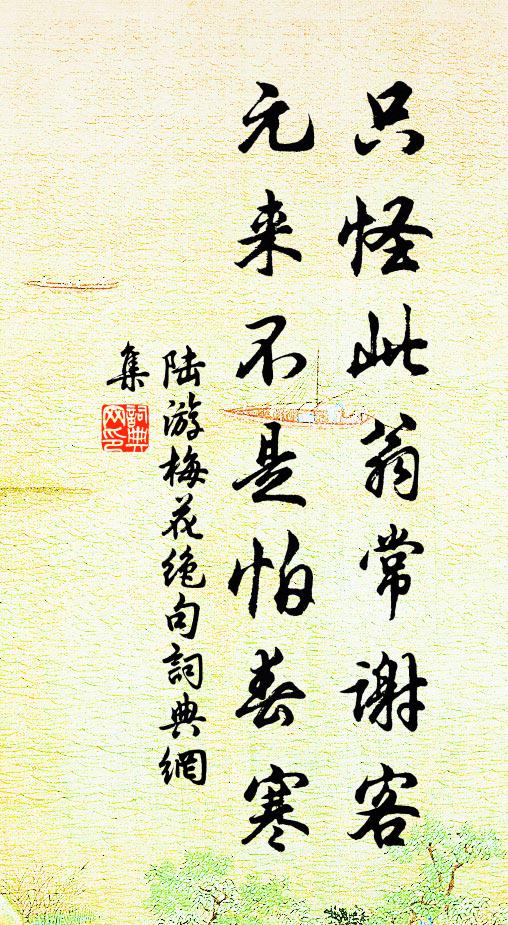 只怪此翁常谢客
元来不是怕春寒
陆游梅花绝句詞典網
集
詞典
网印